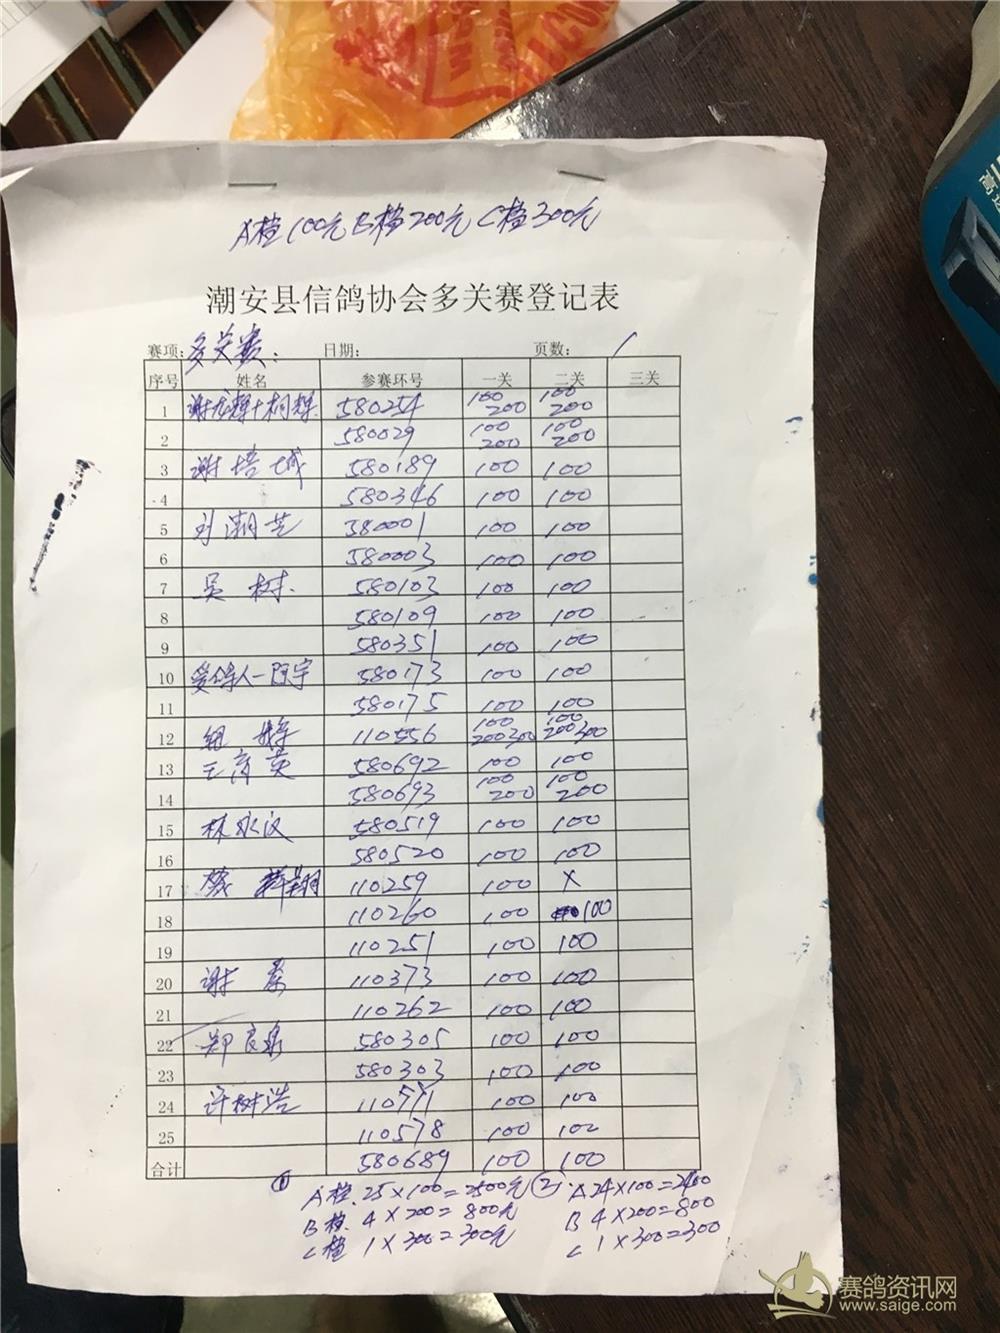 A档100元 B档200元 C档300元
潮安县信鸽协会多关赛登记表
赛项: 多关赛. 日期: 页数: 1
序号 姓名 参赛环号 一关 二关 三关
1 580254 100 200 100 200
2 580029 100 200 100 200
3 谢培城 580189 100 100
4 580346 100 100
5 刘潮芝 580001 100 100
6 580003 100 100
7 吴树. 580103 100 100
8 580109 100 100
9 580351 100 100
10 爱鸽人一阵宇 580173 100 100
11 580175 100 100
12 110556 100 200 300 100 200 300
13 580692 100 100
14 580693 100 200 100 200
15 林永汉 580519 100 100
16 580520 100 100
17 110259 100 X
18 110260 100 100
19 110251 100 100
20 谢 110373 100 100
21 110262 100 100
22 郑良泉 580305 100 100
23 580303 100 100
24 许树浩 110571 100 100
25 110578 100 100
合计 580689 100 100
① A档. 25×100=2500元 ② A 24×100=2400
B档. 4×200=800元 B 4×200=800
C档 1×300=300元 C 1×300=300
赛鸽资讯网
www.saige.com